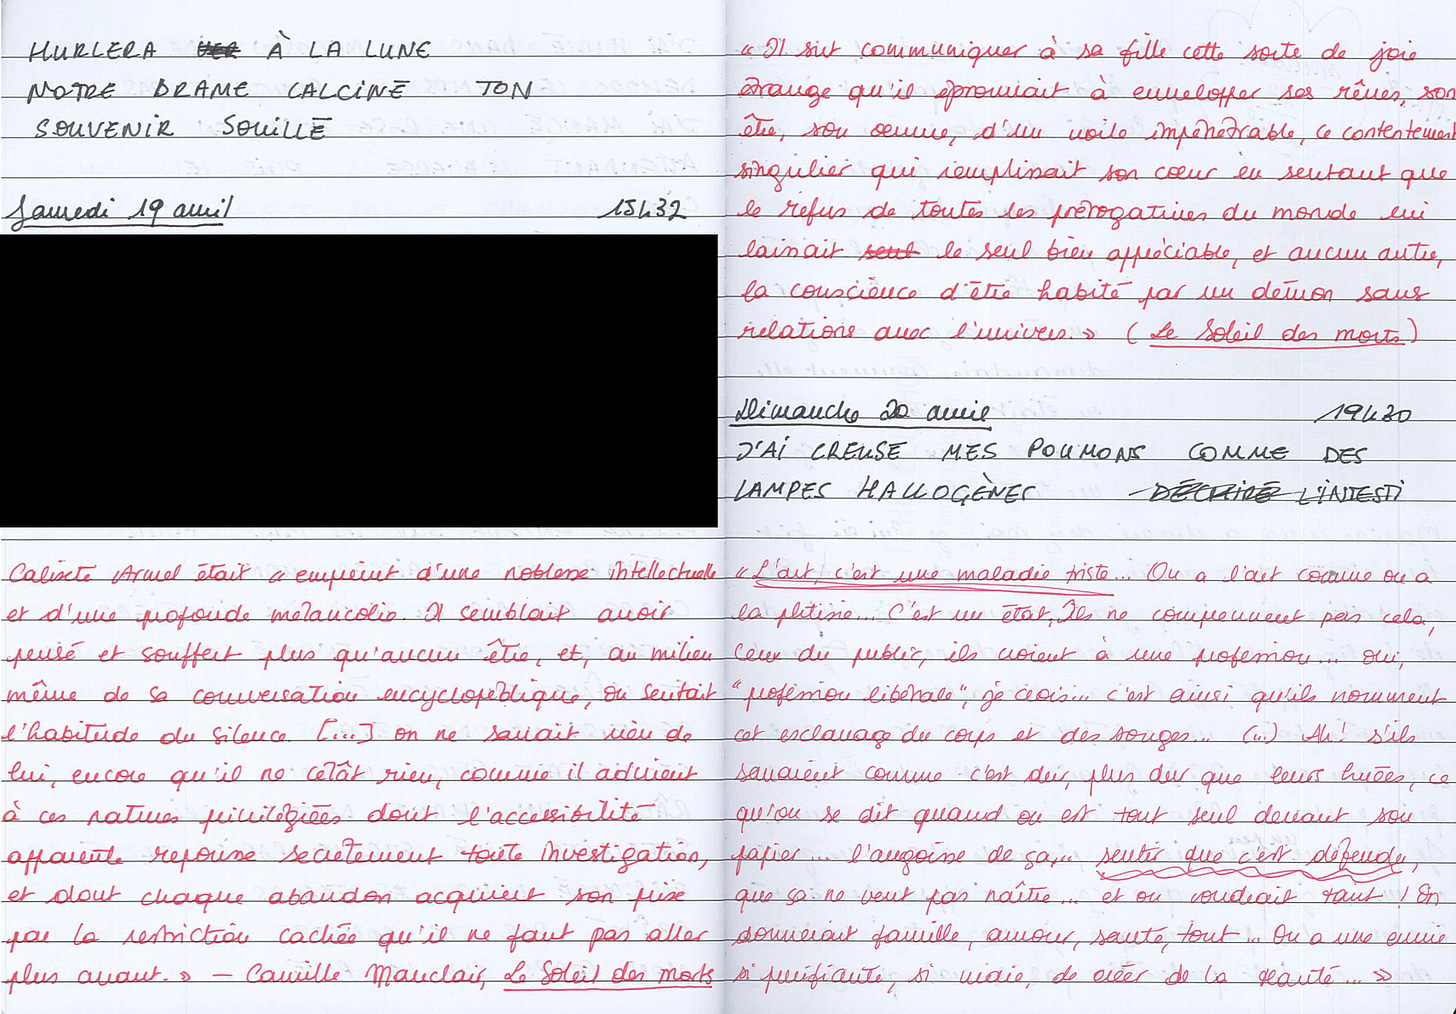 HURLERA À LA LUNE
NOTRE DRAME CALCINÉ TON
SOUVENIR SOUILLÉ
Samedi 19 avril 15h32
Calixte Armel était « empreint d'une noblesse intellectuelle
et d'une profonde mélancolie. Il semblait avoir
pensé et souffert plus qu'aucun être, et, au milieu
même de sa conversation encyclopédique, on sentait
l'habitude du silence. [...] on ne savait rien de
lui, encore qu'il ne celât rien, comme il advient
à ces natures privilégiées dont l'accessibilité
apparente repousse secrètement toute investigation,
et dont chaque abandon acquiert son prix
par la restriction cachée qu'il ne faut pas aller
plus avant. » — Camille Mauclair, Le Soleil des morts
« Il sut communiquer à sa fille cette sorte de joie
étrange qu'il éprouvait à envelopper ses rêves, son
être, son oeuvre, d'un voile impénétrable, ce contentement
singulier qui remplissait son cœur en sentant que
le refus de toutes les prérogatives du monde lui
laissait seul le seul bien appréciable, et aucun autre,
la conscience d'être habité par un démon sans
relations avec l'univers. » (Le Soleil des morts)
Dimanche 20 avril 19h30
J'AI CREUSÉ MES POUMONS COMME DES
LAMPES HALLOGÈNES DÉCHIRÉ L'INTESTI
« L'art, c'est une maladie triste... On a l'art comme on a
la phtisie... C'est un état. Ils ne comprennent pas cela,
ceux du public, ils voient à une profession... oui,
"profession libérale", je crois... c'est ainsi qu'ils nomment
cet esclavage du corps et des songes... (...) Ah ! s'ils
savaient comme c'est dur, plus dur que leurs huées, ce
qu'on se dit quand on est tout seul devant son
papier... l'angoisse de ça... sentir que c'est défendu,
que ça ne veut pas naître... et on voudrait tant ! On
donnerait famille, amour, santé, tout... On a une envie
si purifiante, si vraie, de créer de la beauté... »